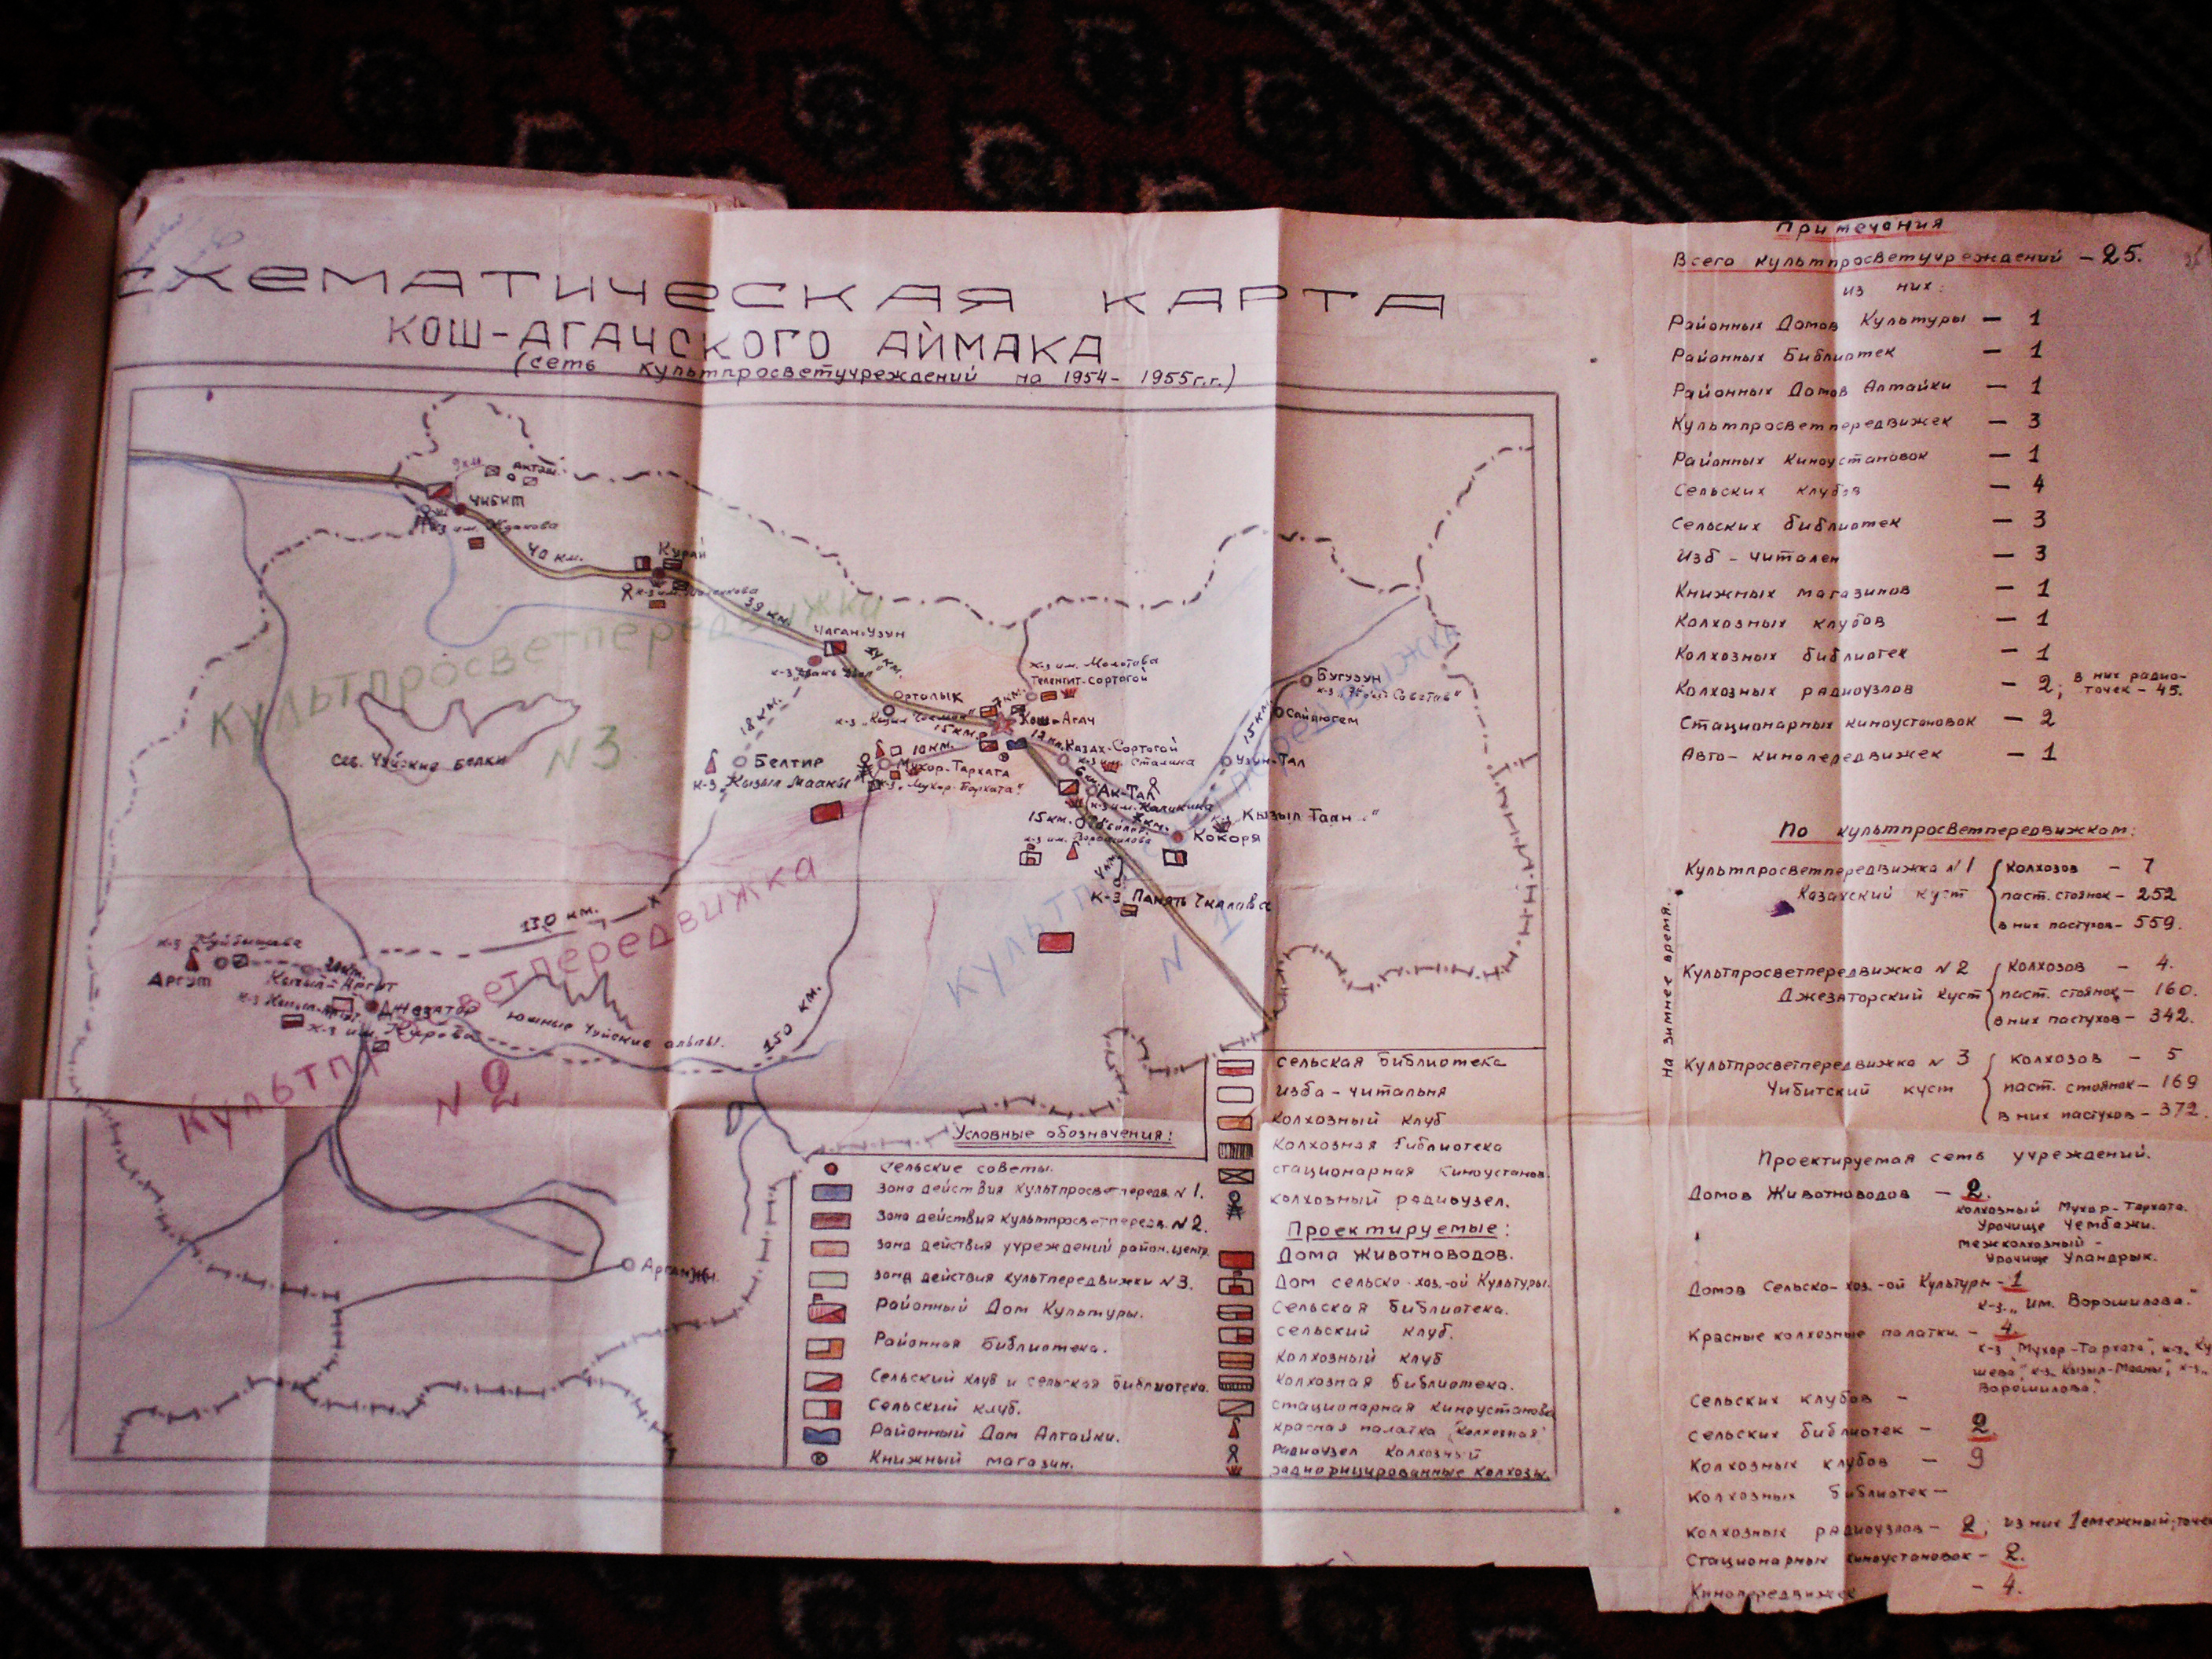 СХЕМАТИЧЕСКАЯ КАРТА
КОШ-АГАЧСКОГО АЙМАКА
(сеть культпросветучреждений на 1954-1955 г.г.)
9 км
Акташ.
Чибит
40 км.
Курай
39 км.
Чаган-Узун
Культпросветпередвижка
N 3
Сев. Чуйские белки
18 км.
Белтир
к-з „Кызыл Мааны"
Ортолык
15 км.
к-з им. Молотова
Теленгит-Сортогой
7 км.
Кош-Агач
10 км.
Мухор-Тархата
к-з „Мухор-Тархата"
12 км.
Казах-Сортогой
к-з им. Сталина
6 км.
Ак-Тал
к-з им. Калинина
15 км.
к-з им. Ворошилова
Кокоря
к-з „Кызыл Таан"
Бугузун
Сайлюгем
15 км.
Узун-Тал
к-з Память Чкалова
Культпросветпередвижка
N 1
130 км.
150 км.
к-з Куйбышева
Аргут
Кызыл-Аргут
Джазатор
к-з им. Кирова
Южные Чуйские альпы.
Культпросветпередвижка
N 2
Аргамжи
Условные обозначения:
Сельские советы.
Зона действия культпросветпередв. N 1.
Зона действия культпросветпередв. N 2.
Зона действия учреждений район. центр.
Зона действия культпередвижки N 3.
Районный Дом Культуры.
Районная библиотека.
Сельский клуб и сельская библиотека.
Сельский клуб.
Районный Дом Алтайки.
Книжный магазин.
Сельская библиотека
Изба-читальня
Колхозный клуб
Колхозная библиотека
стационарная киноустанов.
колхозный радиоузел.
Проектируемые:
Дома Животноводов.
Дом сельско-хоз.-ой Культуры.
Сельская библиотека.
сельский клуб.
Колхозный клуб
Колхозная библиотека.
стационарная киноустановка
Красная палатка „колхозная"
Радиоузел колхозный
радиофицированные колхозы.
Примечания
Всего культпросветучреждений - 25.
из них:
Районных Домов Культуры - 1
Районных Библиотек - 1
Районных Домов Алтайки - 1
Культпросветпередвижек - 3
Районных киноустановок - 1
Сельских клубов - 4
Сельских библиотек - 3
Изб-читален - 3
Книжных магазинов - 1
Колхозных клубов - 1
Колхозных библиотек - 1
Колхозных радиоузлов - 2; в них радио-
точек - 45.
Стационарных киноустановок - 2
Авто-кинопередвижек - 1
По культпросветпередвижкам:
на зимнее время.
Культпросветпередвижка N 1
Казахский куст
колхозов - 7
паст. стоянок - 252
в них пастухов - 559.
Культпросветпередвижка N 2
Джезаторский куст
колхозов - 4.
паст. стоянок - 160.
в них пастухов - 342.
Культпросветпередвижка N 3
Чибитский куст
колхозов - 5
паст. стоянок - 169
в них пастухов - 372.
Проектируемая сеть учреждений.
Домов Животноводов - 2.
колхозный Мухор-Тархата.
Урочище Чембажи.
межколхозный -
Урочище Уландрык.
Домов Сельско-хоз.-ой Культуры - 1
к-з „им. Ворошилова."
Красные колхозные палатки. - 4.
к-з „Мухор-Тархата", к-з „Ку
шева", к-з „Кызыл-Мааны", к-з „
Ворошилова."
Сельских клубов -
сельских библиотек - 2
Колхозных клубов - 9
Колхозных библиотек -
колхозных радиоузлов - 2; из них 1
Стационарных киноустановок - 2.
Кинопередвижек - 4.